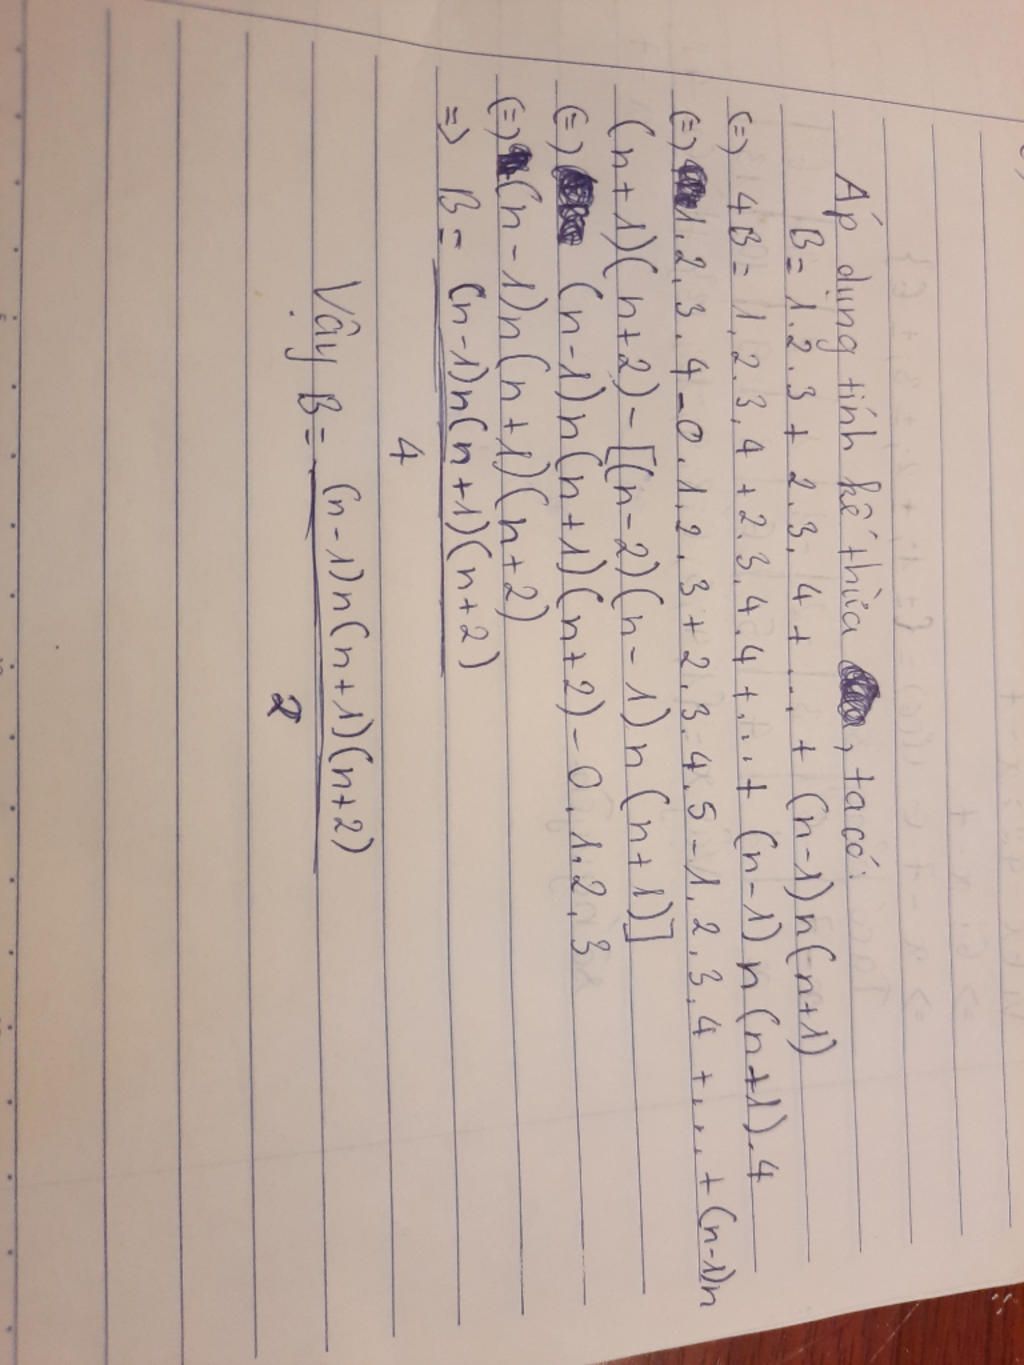 Áp dụng tính kế thừa , ta có:
B = 1.2.3 + 2.3.4 + ... + (n-1)n(n+1)
(=) 4B = 1.2.3.4 + 2.3.4.4 + ... + (n-1)n(n+1).4
(=) 1.2.3.4 - 0.1.2.3 + 2.3.4.5 - 1.2.3.4 + ... + (n-1)n
(n+1)(n+2) - [(n-2)(n-1)n(n+1)]
(=) (n-1)n(n+1)(n+2) - 0.1.2.3
(=) (n-1)n(n+1)(n+2)
=> B = (n-1)n(n+1)(n+2)
4
Vậy B = (n-1)n(n+1)(n+2)
2